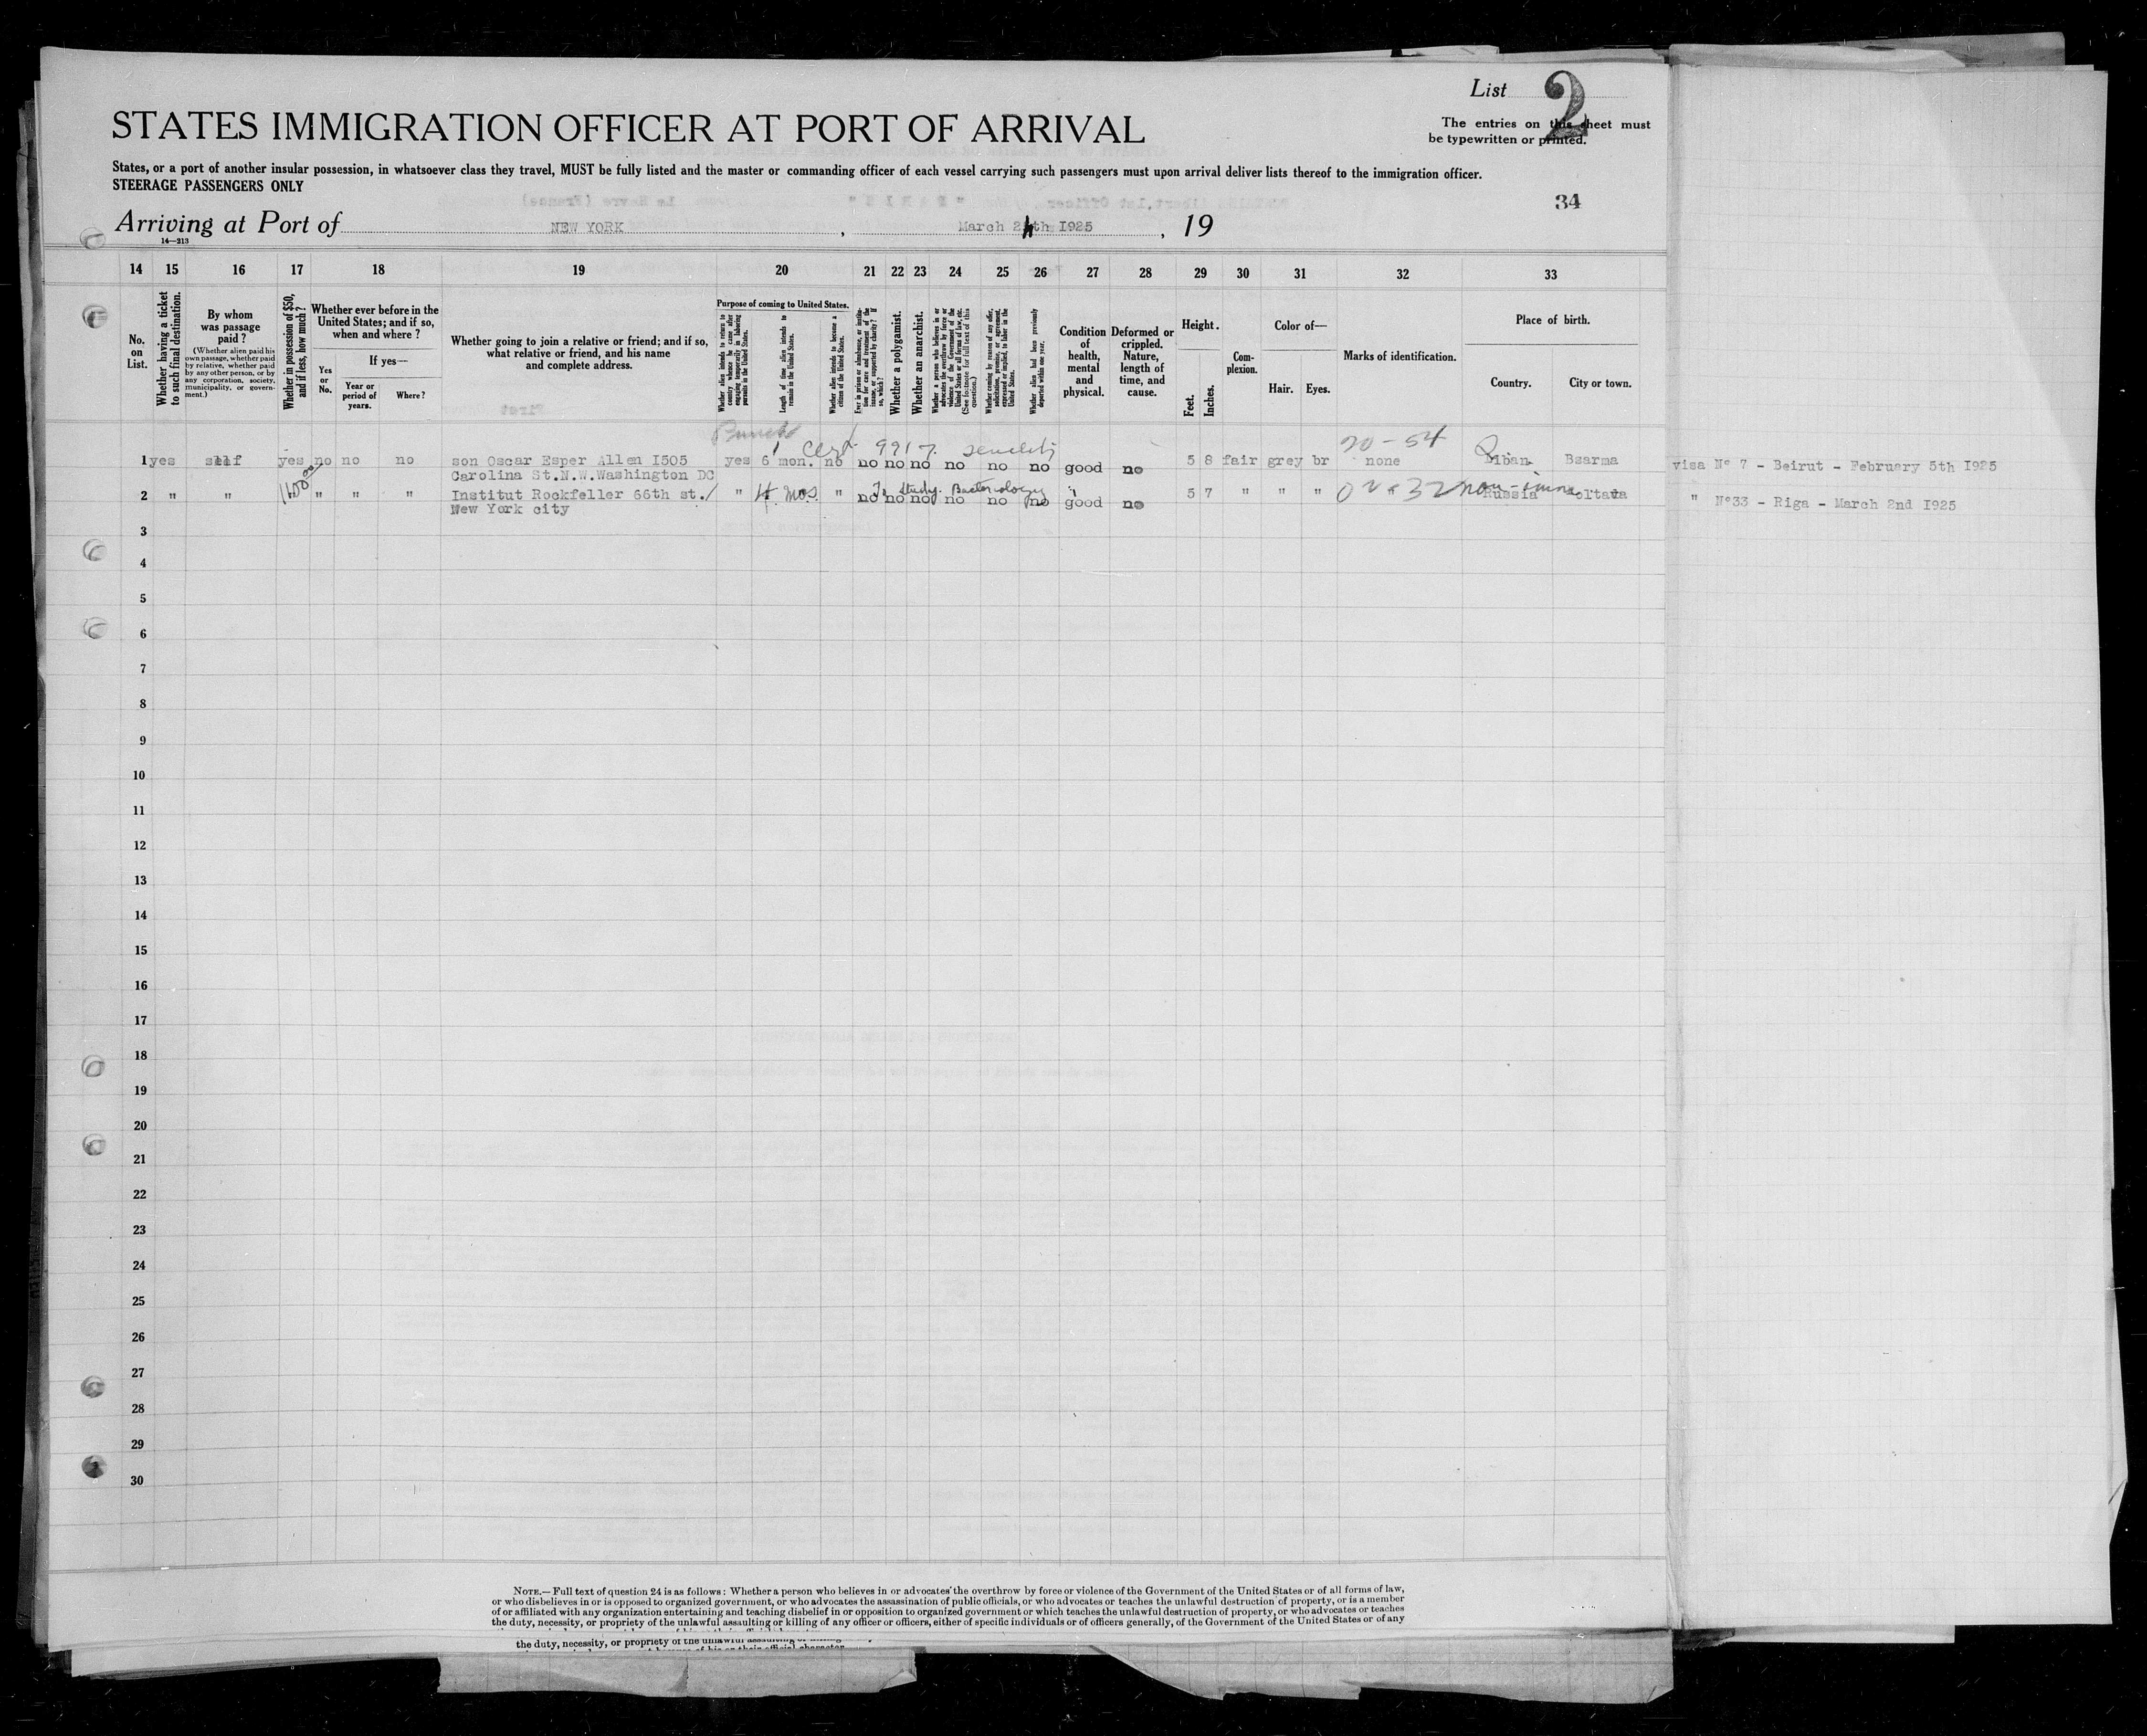 List 2
STATES IMMIGRATION OFFICER AT PORT OF ARRIVAL
The entries on this sheet must
be typewritten or printed.
States, or a port of another insular possession, in whatsoever class they travel, MUST be fully listed and the master or commanding officer of each vessel carrying such passengers must upon arrival deliver lists thereof to the immigration officer.
STEERAGE PASSENGERS ONLY
34
Arriving at Port of NEW YORK, March 24th I925, 19
14—213
14 15 16 17 18 19 20 21 22 23 24 25 26 27 28 29 30 31 32 33
No. on List.
Whether having a ticket to such final destination.
By whom was passage paid?
(Whether alien paid his own passage, whether paid by relative, whether paid by any other person, or by any corporation, society, municipality, or government.)
Whether in possession of $50, and if less, how much?
Whether ever before in the United States; and if so, when and where?
Yes or No.
If yes—
Year or period of years.
Where?
Whether going to join a relative or friend; and if so, what relative or friend, and his name and complete address.
Purpose of coming to United States.
Whether alien intends to return to country whence he came after engaging temporarily in laboring pursuits in the United States.
Length of time alien intends to remain in the United States.
Whether alien intends to become a citizen of the United States.
Ever in prison or almshouse, or institution for care and treatment of the insane, or supported by charity? If so, which?
Whether a polygamist.
Whether an anarchist.
Whether a person who believes in or advocates the overthrow by force or violence of the Government of the United States or all forms of law, etc. (See footnote for full text of this question.)
Whether coming by reason of any offer, solicitation, promise, or agreement, expressed or implied, to labor in the United States.
Whether alien had been previously deported within one year.
Condition of health, mental and physical.
Deformed or crippled. Nature, length of time, and cause.
Height.
Feet. Inches.
Complexion.
Color of—
Hair. Eyes.
Marks of identification.
Place of birth.
Country. City or town.
Cert 9917 senility 20-54
1 yes self yes no no no son Oscar Esper Allen I505 yes 6 mon. no no no no no no no good no 5 8 fair grey br none Liban Bsarma visa N° 7 - Beirut - February 5th I925
Carolina St.N.W.Washington DC
1600 To Study Bacteriology
2 " " " " " Institut Rockfeller 66th st./ " 4 mos. " no no no no no no good no 5 7 " " " non-imm Russia Poltava " N°33 - Riga - March 2nd I925
New York city
3
4
5
6
7
8
9
10
11
12
13
14
15
16
17
18
19
20
21
22
23
24
25
26
27
28
29
30
NOTE.—Full text of question 24 is as follows: Whether a person who believes in or advocates the overthrow by force or violence of the Government of the United States or of all forms of law,
or who disbelieves in or is opposed to organized government, or who advocates the assassination of public officials, or who advocates or teaches the unlawful destruction of property, or is a member
of or affiliated with any organization entertaining and teaching disbelief in or opposition to organized government or which teaches the unlawful destruction of property, or who advocates or teaches
the duty, necessity, or propriety of the unlawful assaulting or killing of any officer or officers, either of specific individuals or of officers generally, of the Government of the United States or of any
the duty, necessity, or propriety of the unlawful assaulting or killing